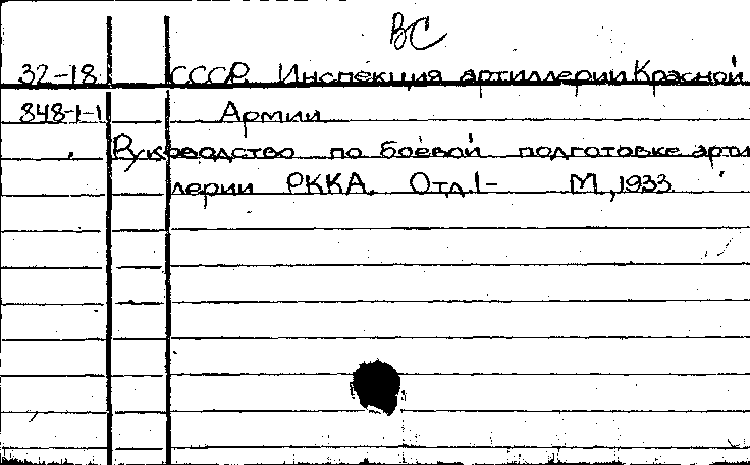 ВС
32-18 СССР. Инспекция артиллерии Красной
848-1-1 Армии
Руководство по боевой подготовке арти
лерии РККА. Отд.1- М.,1933.